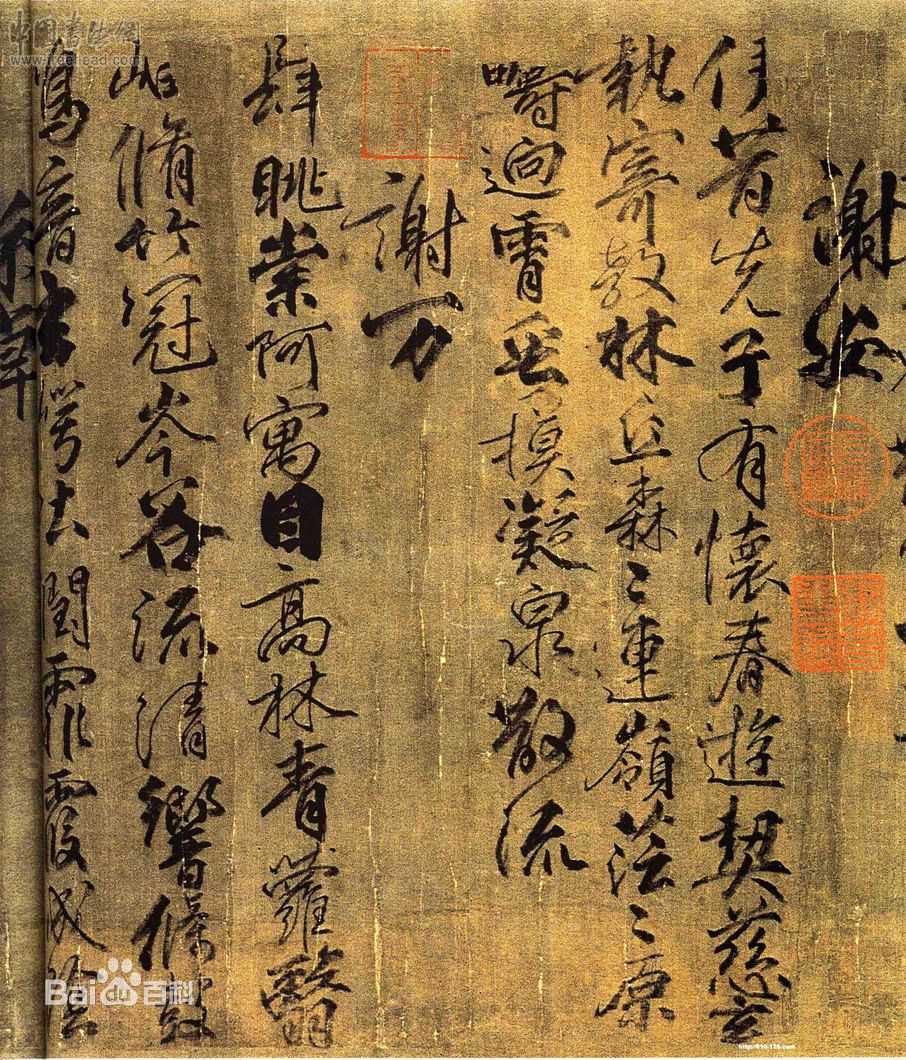 謝安
伊昔先子有懷春遊契慈言
執寄敖林丘森〻連嶺茫〻原
疇迥霄垂摸凝泉散流
謝万
肆眺崇阿寓目高林青蘿翳
岫脩竹冠岑谷流清響條鼓
鳴音玄崿吐閏霏霞成陰
中国书法网
www.freehead.com
Bai百科